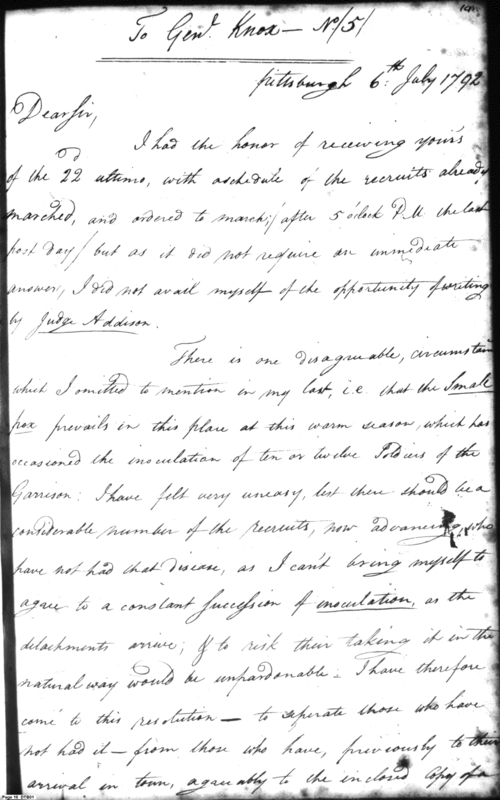 To Genl. Knox — No. 15
Pittsburgh 6th. July 1792
Dear Sir,
I had the honor of receiving yours
of the 22d ultimo, with a schedule of the recruits already
marched, and ordered to march; / after 5 oClock P.M. the last
post day / but as it did not require an immediate
answer, I did not avail myself of the opportunity of writing
by Judge Addison.
There is one disagreeable, circumstan
which I omitted to mention in my last, i.e. that the Small
pox prevails in this place at this warm season, which has
occasioned the inoculation of ten or twelve Soldiers of the
Garrison: I have felt very uneasy, lest there should be a
considerable number of the recruits, now advancing, who
have not had that disease, as I can't bring myself to
agree to a constant succession of inoculation, as the
detachments arrive; & to risk their taking it in the
natural way would be unpardonable – I have therefore
come to this resolution — to seperate those who have
not had it — from those who have, previously to their
arrival in town, agreeably to the inclosed Copy of a